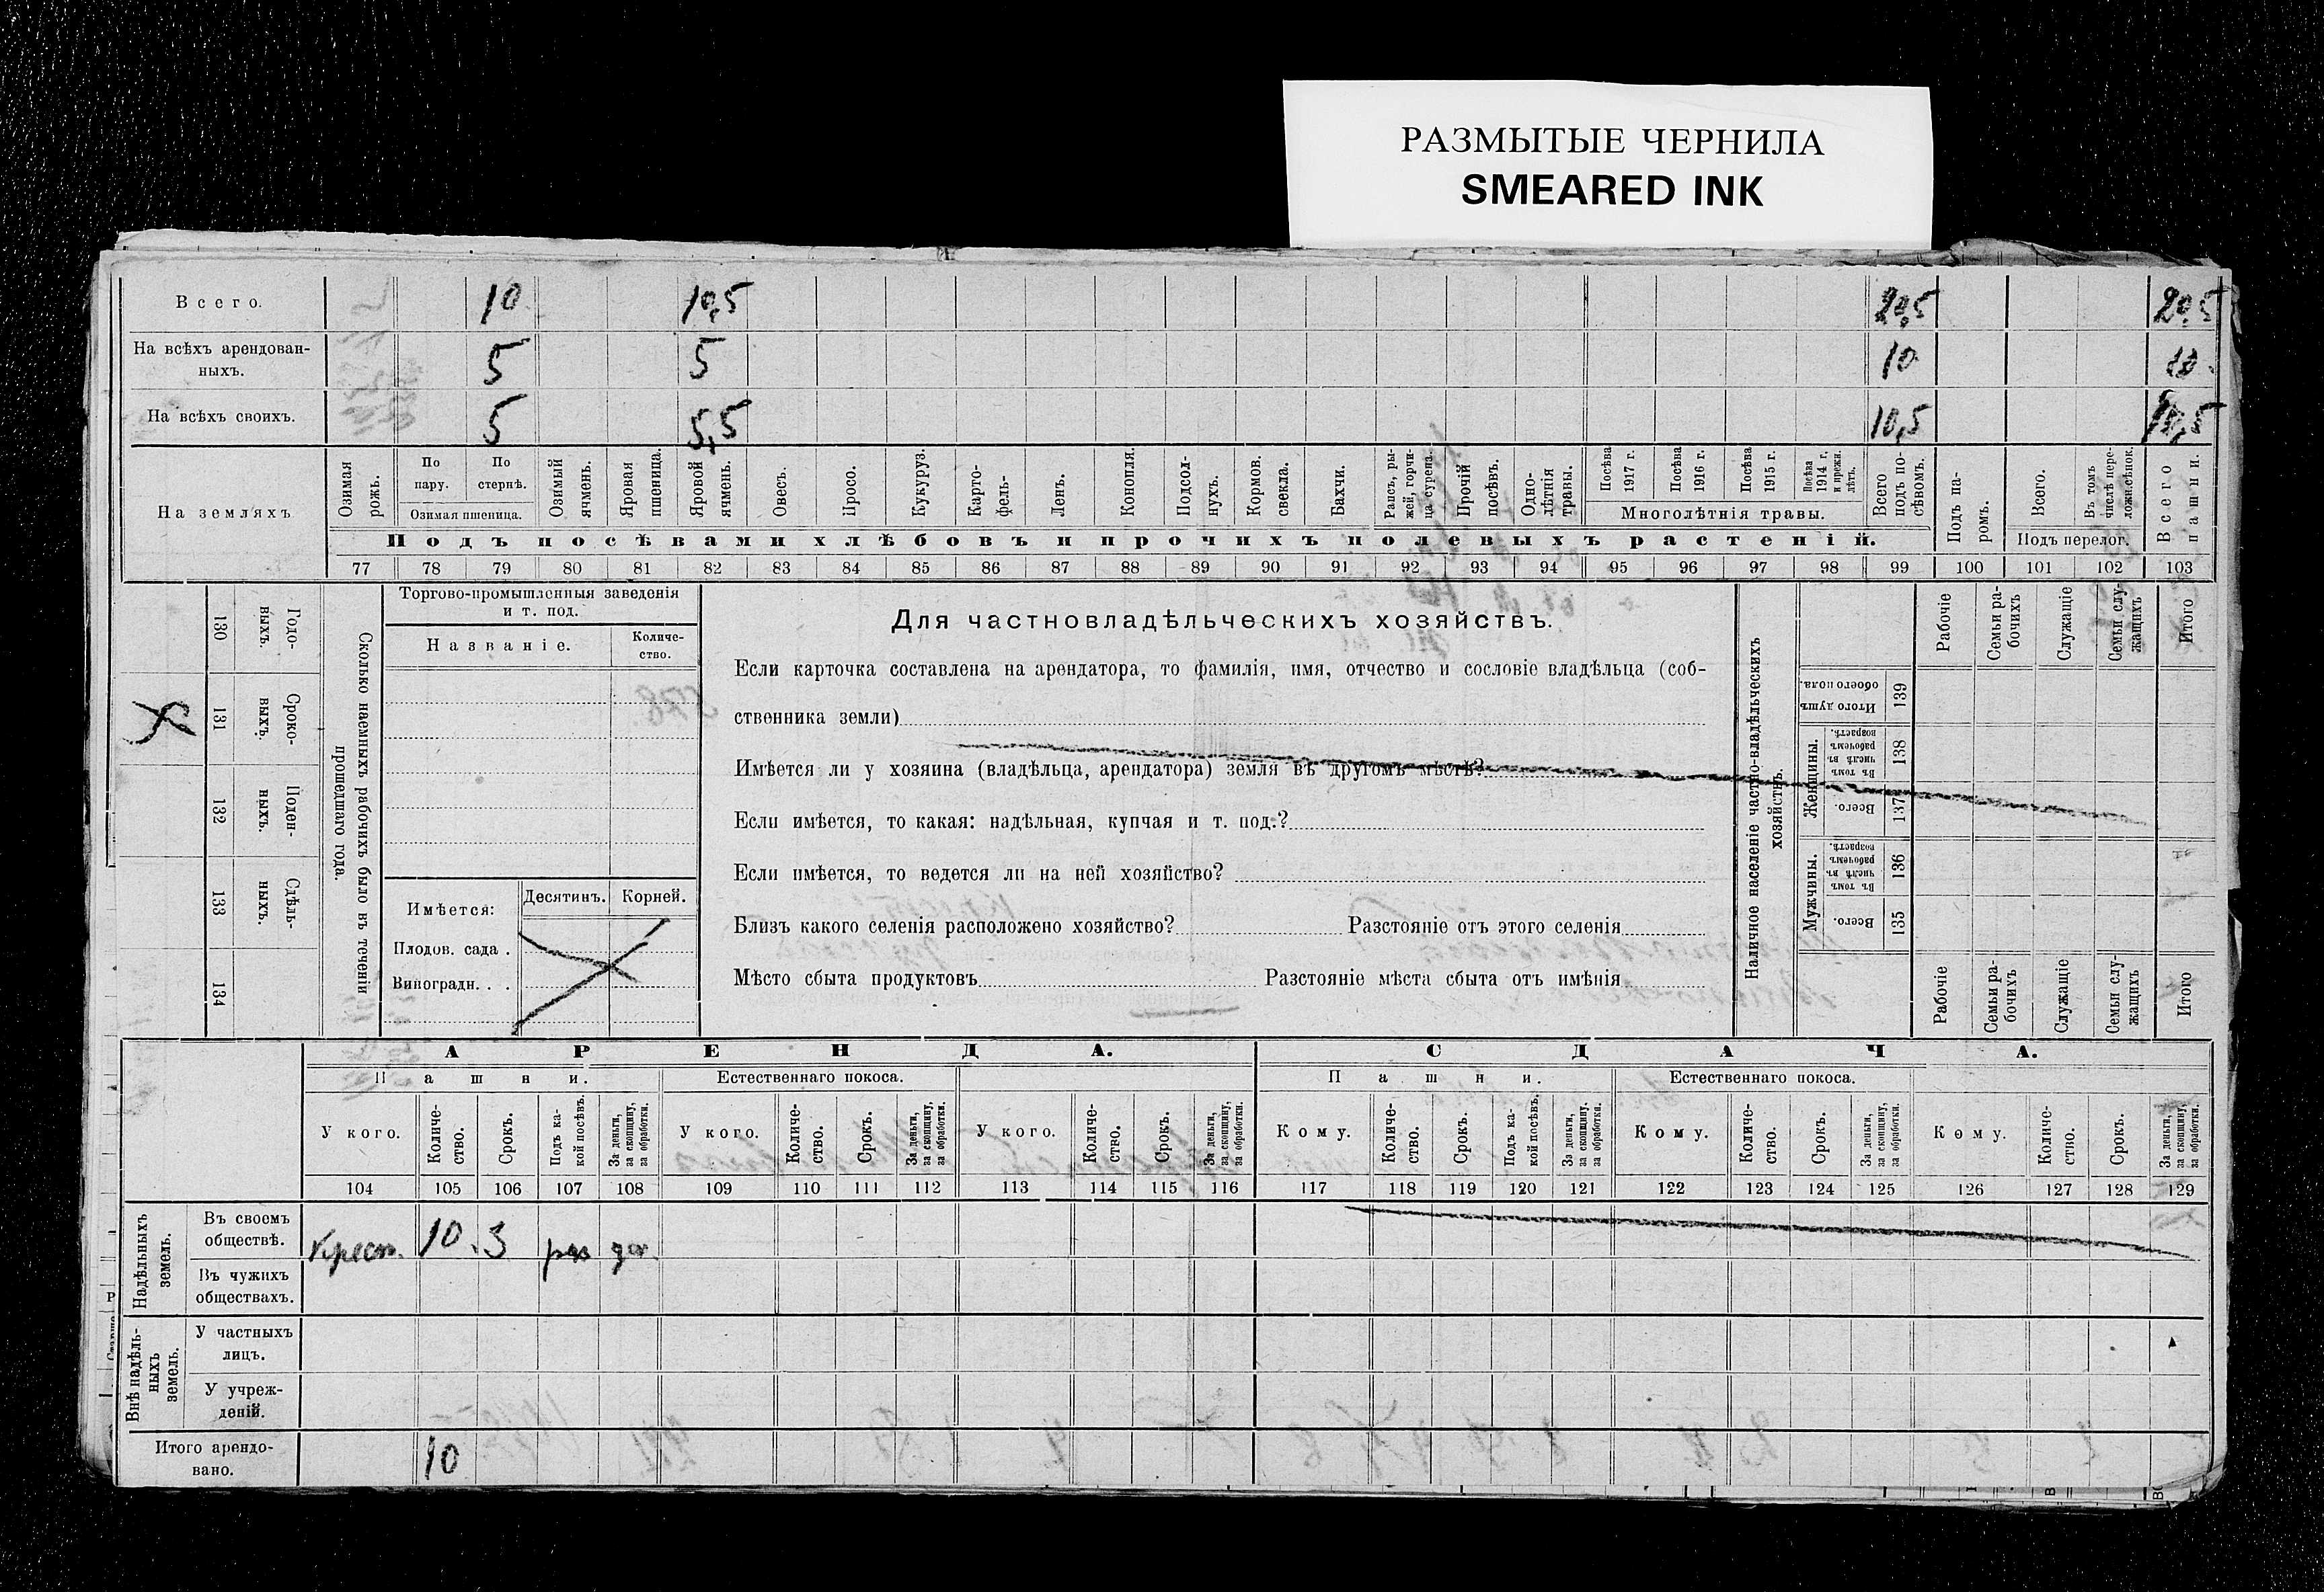 РАЗМЫТЫЕ ЧЕРНИЛА
SMEARED INK
Всего. 10 10,5 20,5 20,5
На всѣхъ арендован-
ныхъ. 5 5 10 10
На всѣхъ своихъ. 5 5,5 10,5 10,5
На земляхъ
Озимая рожь.
По пару.
По стернѣ.
Озимая пшеница.
Озимый ячмень.
Яровая пшеница.
Яровой ячмень.
Овесъ.
Просо.
Кукуруз.
Карто-
фель-
Ленъ.
Конопля.
Подсол-
нухъ.
Кормов. свекла.
Бахчи.
Рапсъ, ры-
жей, горчи-
ца сурепа.
Прочій посѣвъ.
Одно-
лѣтнія травы.
Посѣва 1917 г.
Посѣва 1916 г.
Посѣва 1915 г.
Посѣва 1914 г. и прежн. лѣтъ.
Многолѣтнія травы.
Всего подъ по-
сѣвомъ.
Подъ па-
ромъ.
Всего.
Въ томъ числѣ пере-
ложн.сѣнок.
Подъ перелог.
Всего пашни.
Подъ посѣвами хлѣбовъ и прочихъ полевыхъ растеній.
77 78 79 80 81 82 83 84 85 86 87 88 89 90 91 92 93 94 95 96 97 98 99 100 101 102 103
130 Годо-
выхъ.
131 Сроко-
ныхъ.
132 Поден-
ныхъ.
133 Сдѣль-
ныхъ.
134
Сколько наемныхъ рабочихъ было въ теченіи
прошедшаго года.
Торгово-промышленныя заведенія
и т. под.
Названіе.
Количе-
ство.
Имѣется: Десятинъ. Корней.
Плодов. сада .
Виноградн. . .
Для частновладѣльческихъ хозяйствъ.
Если карточка составлена на арендатора, то фамилія, имя, отчество и сословіе владѣльца (соб-
ственника земли)
Имѣется ли у хозяина (владѣльца, арендатора) земля въ другомъ мѣстѣ?
Если имѣется, то какая: надѣльная, купчая и т. под.?
Если имѣется, то ведется ли на ней хозяйство?
Близъ какого селенія расположено хозяйство? Разстояніе отъ этого селенія
Мѣсто сбыта продуктовъ Разстояніе мѣста сбыта отъ имѣнія
Наличное населеніе частно-владѣльческихъ
хозяйствъ.
Рабочіе
Семьи ра-
бочихъ
Служащіе
Семьи слу-
жащихъ
Итого
Итого душъ обоего пола. 139
Женщины.
Въ томъ числѣ въ рабочемъ возрастѣ. 138
Всего. 137
Мужчины.
Въ томъ числѣ въ рабочемъ возрастѣ. 136
Всего. 135
Рабочіе
Семьи ра-
бочихъ
Служащіе
Семьи слу-
жащихъ
Итого
АРЕНДА. СДАЧА.
Пашни. Естественнаго покоса. Пашни. Естественнаго покоса.
У кого. Количе-
ство. Срокъ. Подъ ка-
кой посѣвъ. За деньги, за скопщину, за обработки.
У кого. Количе-
ство. Срокъ. За деньги, за скопщину, за обработки.
У кого. Количе-
ство. Срокъ. За деньги, за скопщину, за обработки.
Кому. Количе-
ство. Срокъ. Подъ ка-
кой посѣвъ. За деньги, за скопщину, за обработки.
Кому. Количе-
ство. Срокъ. За деньги, за скопщину, за обработки.
Кому. Количе-
ство. Срокъ. За деньги, за скопщину, за обработки.
104 105 106 107 108 109 110 111 112 113 114 115 116 117 118 119 120 121 122 123 124 125 126 127 128 129
Надѣльныхъ земель.
Въ своемъ
обществѣ. Крест. 10 3
Въ чужихъ
обществахъ.
Внѣ надѣль-
ныхъ земель.
У частныхъ
лицъ.
У учреж-
деній.
Итого арендо-
вано. 10